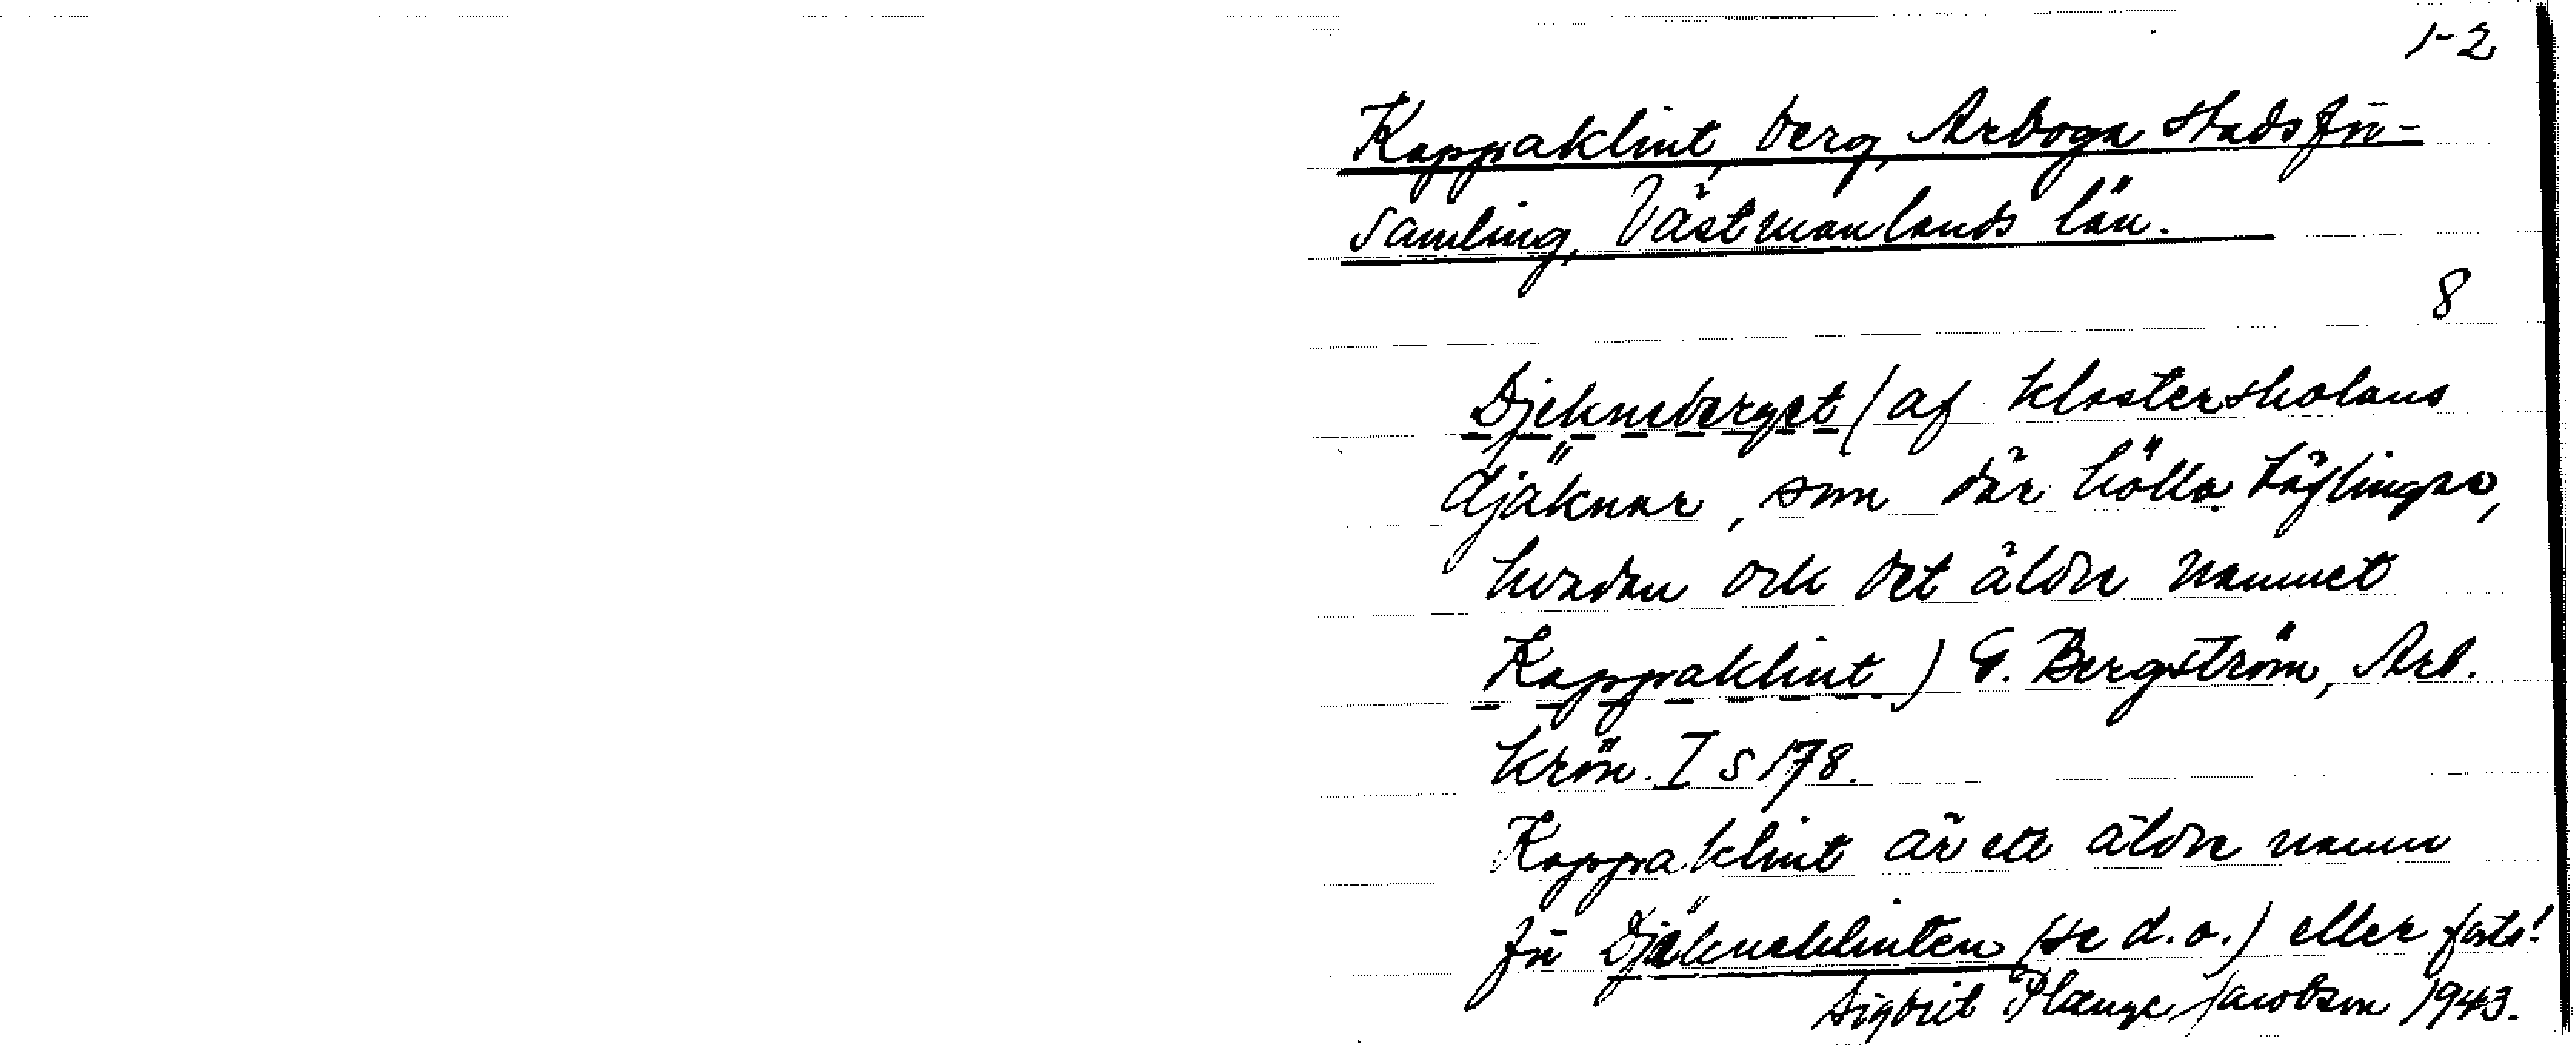 1-2
Kappaklint, berg, Arboga stadsför-
samling, Västmanlands län.
8
Djekneberget (af klosterskolans
djäknar, som där höllo täflingar,
hvadan ock det äldre namnet
Kappaklint) G. Bergström, Arb.
krön. I s 178.
Kappaklint är ett äldre namn
för Djäkneklinten (se d.o.) eller forts!
Sigbrit Plænge Jacobson 1943.